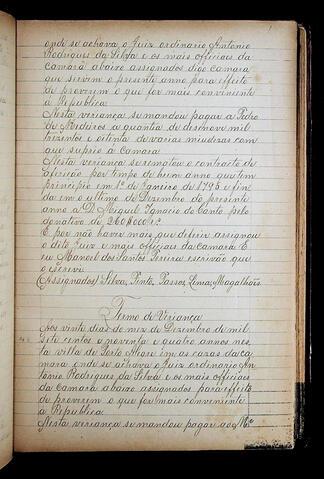 onde se achava o Juiz ordinario Antonio
Rodrigues da Silva e os mais officiaes da
camara abaixo assignados digo camara
que servem o presente anno para effeito
de proverem o que for mais conveniente
á Republica
Nesta veriança se mandou pagar a Pedro
de Medeiros a quantia de desenove mil
trezentos e oitenta de varias miudezas com
que suprio a Camara
Nesta veriança se rematou o contracto de
afirição por tempo de hum anno que tem
principio em 1º de Janeiro de 1795 e fin
da em o ultimo de Dezembro do presente
anno a D. Miguel Ignacio do Canto pelo
donativo de
E por não haver mais que deferir assignou
o dito Juiz e mais officiaes da camara E
eu Manoel dos Santos Pereira escrivão que
o escrevi
(Assignados) Silva, Pinto, Passos, Lima, Magalhães.
Termo de Veriança
Aos vinte dias do mez de Dezembro de mil
sete centos e noventa e quatro annos nes
ta villa de Porto Alegre em as cazas da ca
mara onde se achava o Juiz ordinario An
tonio Rodrigues da Silva e os mais officiaes
da camara abaixo assignados para effeito
de proverem o que for mais conveniente
á Republica
Nesta veriança se mandou pagar ao